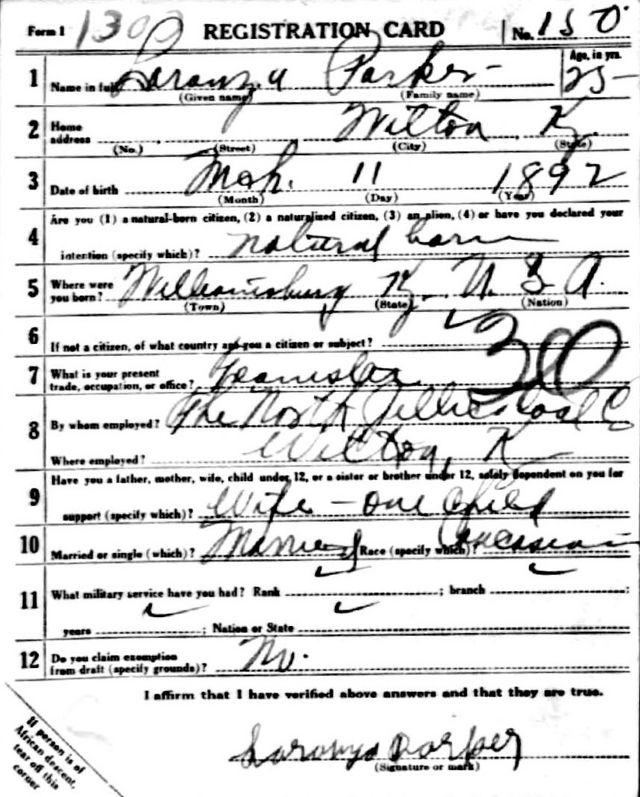 Form 1 1300 REGISTRATION CARD No. 150
1 Name in full Loranza Parker Age, in yrs. 25
(Given name) (Family name)
2 Home address Wilton, Ky.
(No.) (Street) (City) (State)
3 Date of birth Mch. 11 1892
(Month) (Day) (Year)
Are you (1) a natural-born citizen, (2) a naturalized citizen, (3) an alien, (4) or have you declared your
4 intention (specify which)? natural born
5 Where were you born? Williamsburg Ky. U. S. A.
(Town) (State) (Nation)
6 If not a citizen, of what country are you a citizen or subject?
7 What is your present trade, occupation, or office? Teamster 30
8 By whom employed? The North Jellico Coal C
Where employed? Wilton, K
9 Have you a father, mother, wife, child under 12, or a sister or brother under 12, solely dependent on you for
support (specify which)? Wife - one child
10 Married or single (which)? Married Race (specify which)? Caucasian
11 What military service have you had? Rank ; branch ;
years ; Nation or State
12 Do you claim exemption from draft (specify grounds)? No.
I affirm that I have verified above answers and that they are true.
(Signature or mark)
If person is of
African descent,
tear off this
corner